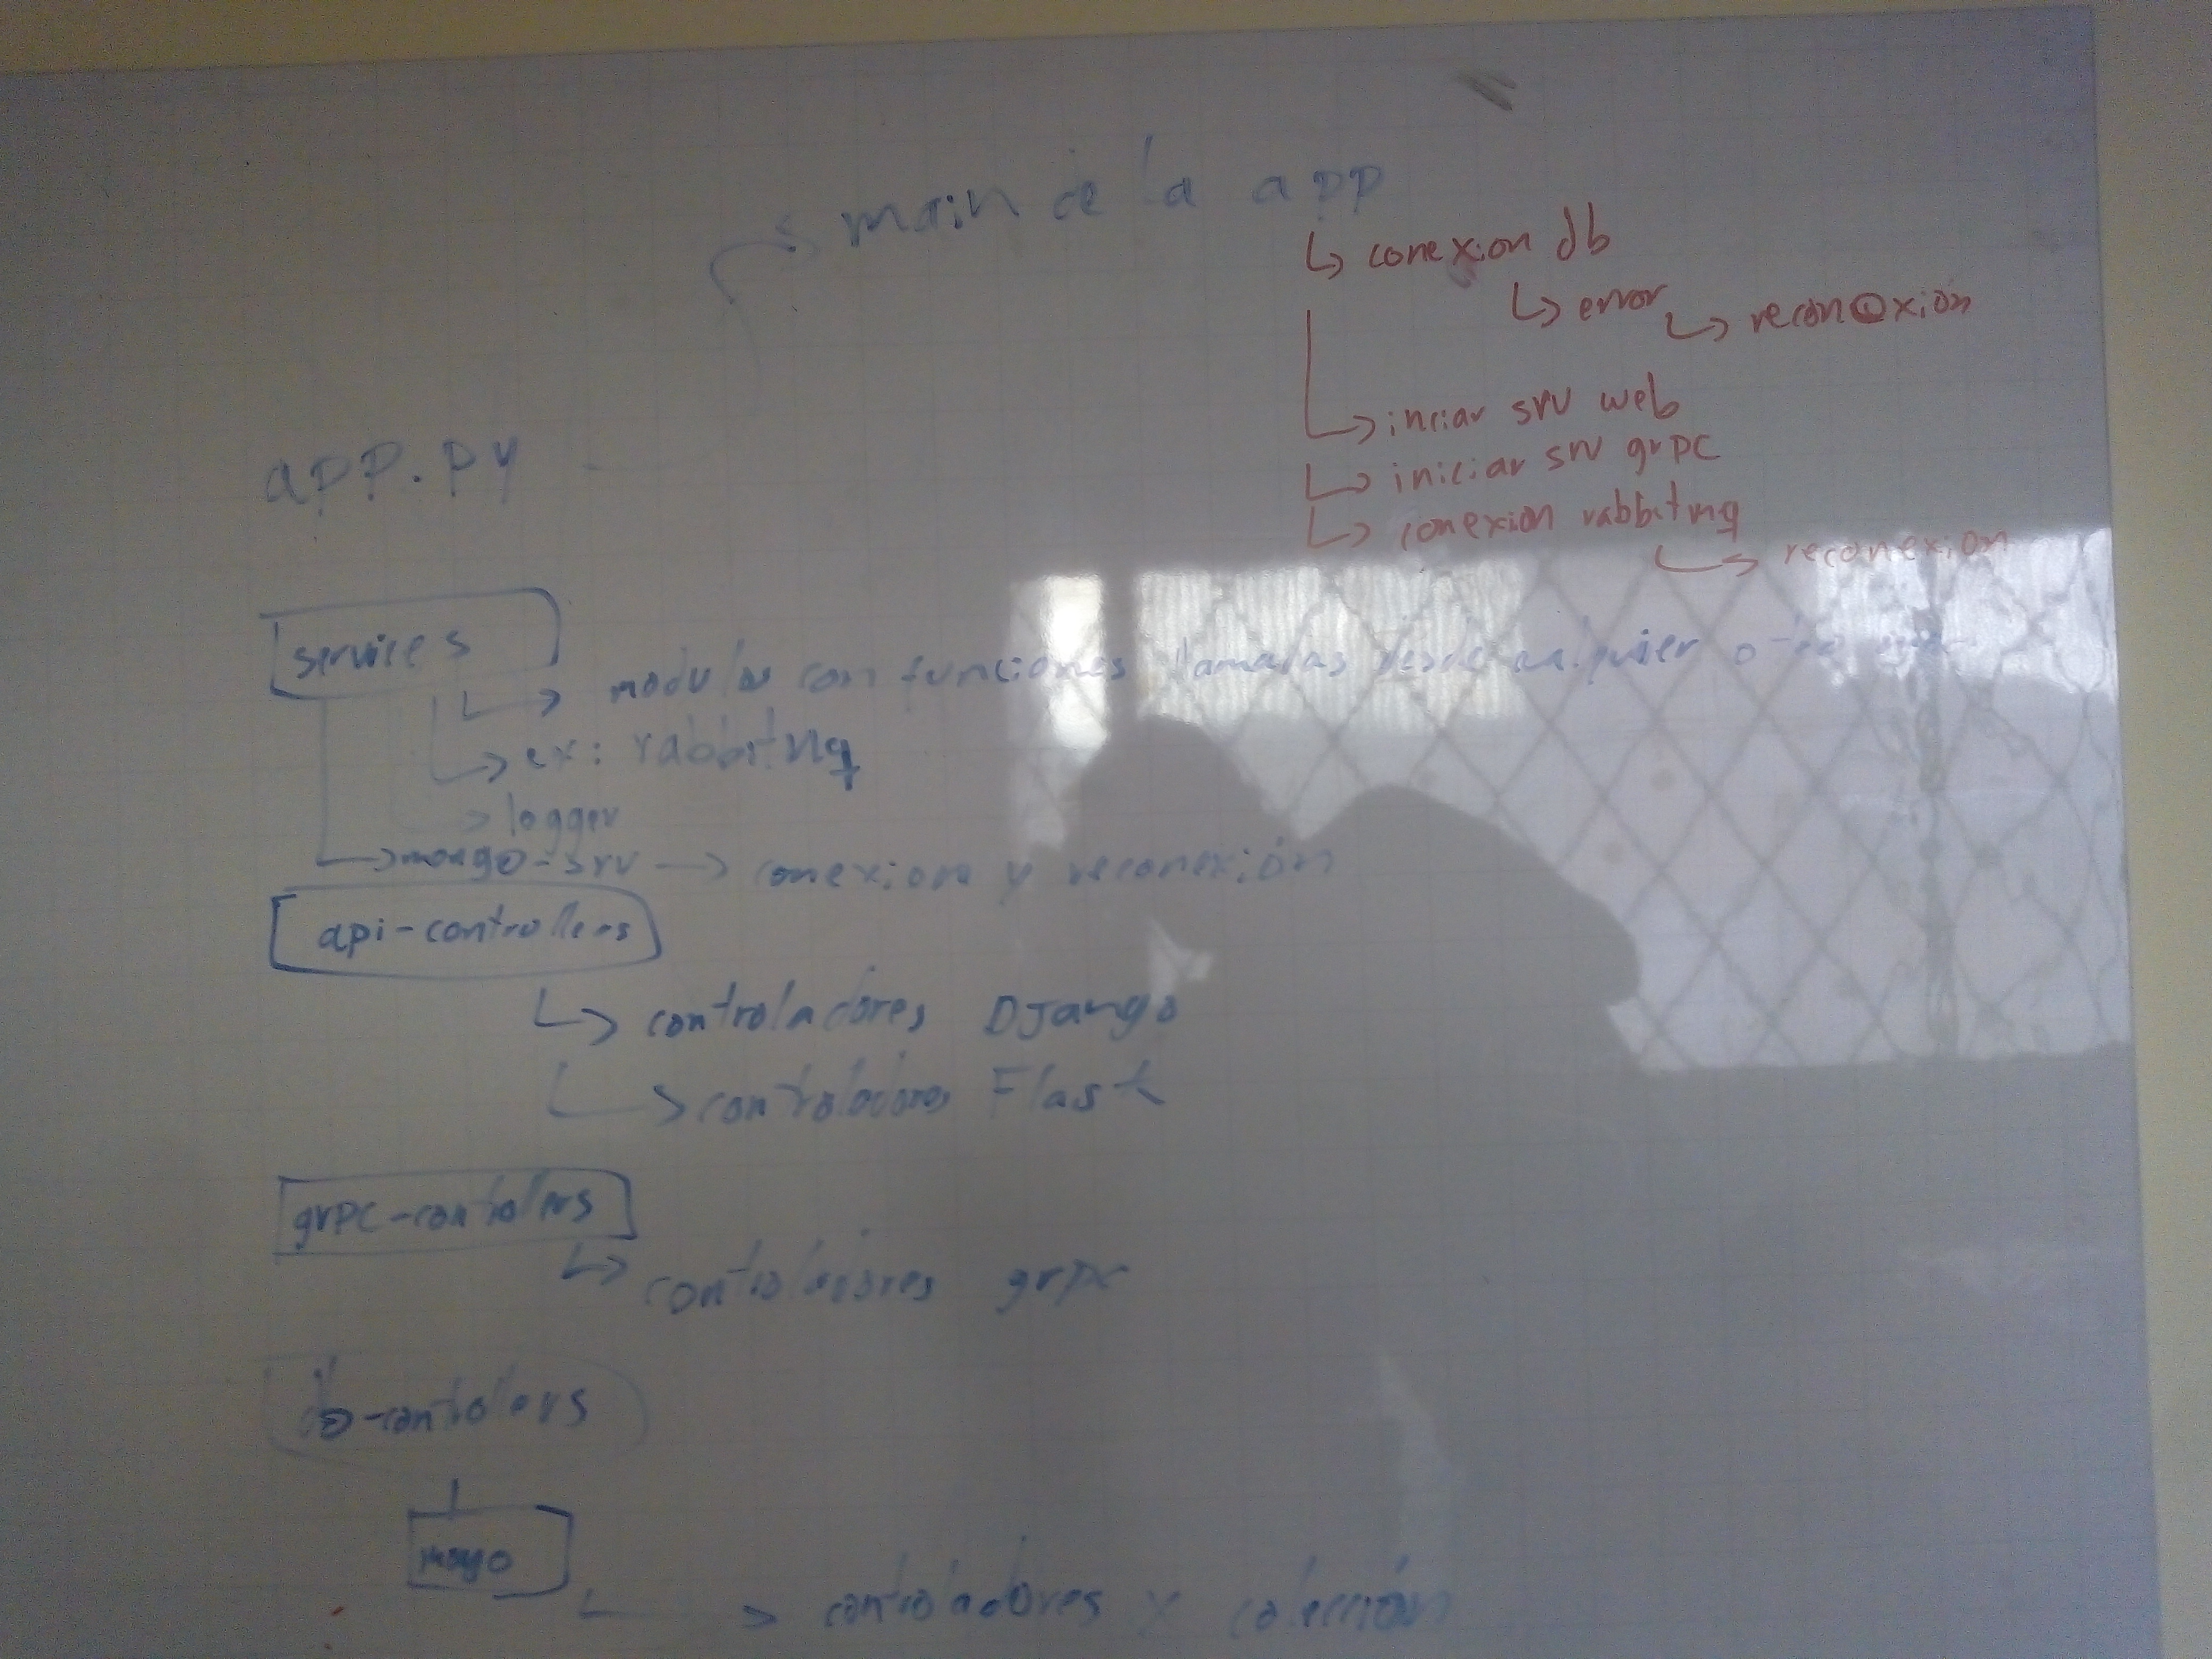 main de la app
↳ conexion db
↳ error ↳ reconexion
↳ inciar srv web
app.py
↳ iniciar srv grpc
↳ conexion rabbitmq
↳ reconexion
services
↳ modulos con funciones llamadas desde cualquier otro
↳ ex: rabbitmq
→ logger
↳ mongo-srv → conexion y reconexión
api-controllers
↳ controladores Django
↳ controladores Flask
grpc-controllers
↳ controladores grpc
db-controllers
mongo
↳ controladores x colección